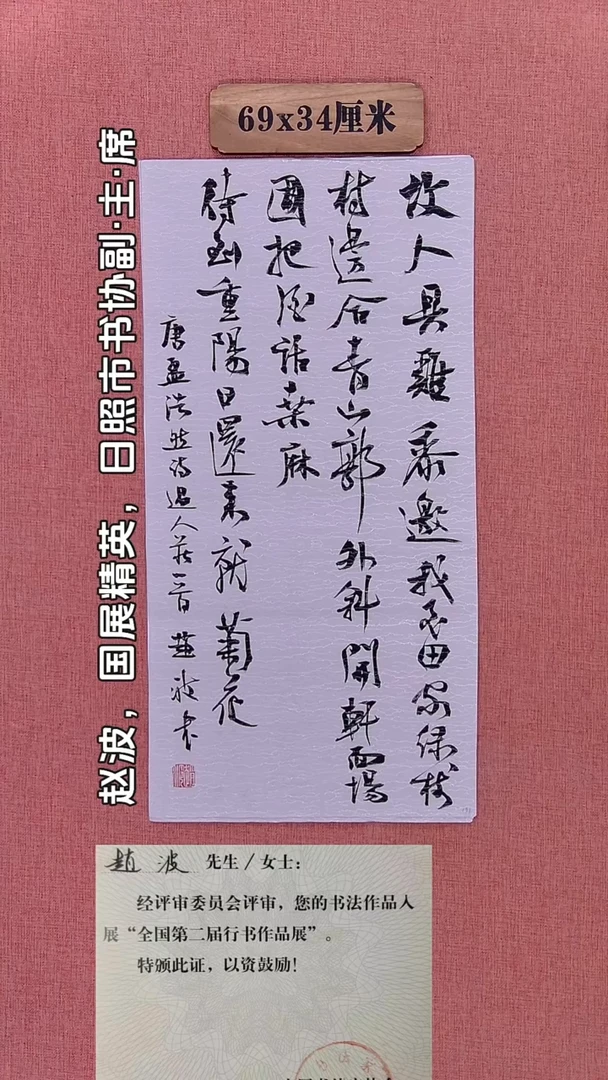 69x34厘米
赵波，国展精英，日照市书协副·主·席
故人具雞黍邀我至田家綠樹
村邊合青山郭外斜開軒面場
圃把酒話桑麻
待到重陽日還來就菊花
唐孟浩然詩過人莊一首 趙波書
趙波 先生/女士：
经评审委员会评审，您的书法作品入
展“全国第二届行书作品展”。
特颁此证，以资鼓励！